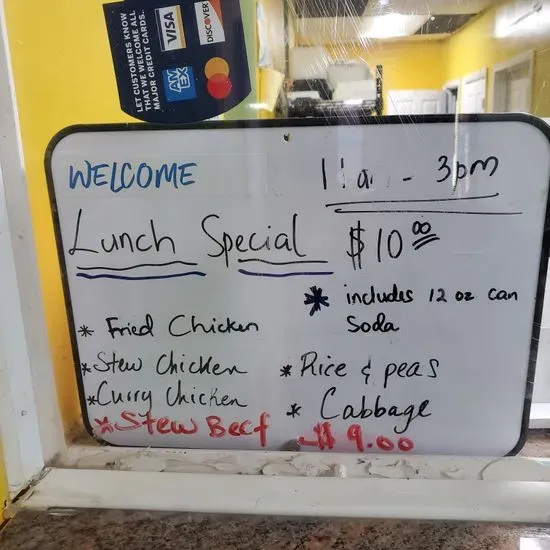 LET CUSTOMERS KNOW
THAT WE WELCOME ALL
MAJOR CREDIT CARDS.
VISA
DISCOVER
AM
EX
WELCOME
11a - 3pm
Lunch Special $10.00
* includes 12 oz can
Soda
* Fried Chicken
* Stew Chicken
* Rice & peas
* Curry Chicken
* Cabbage
* Stew Beef $9.00